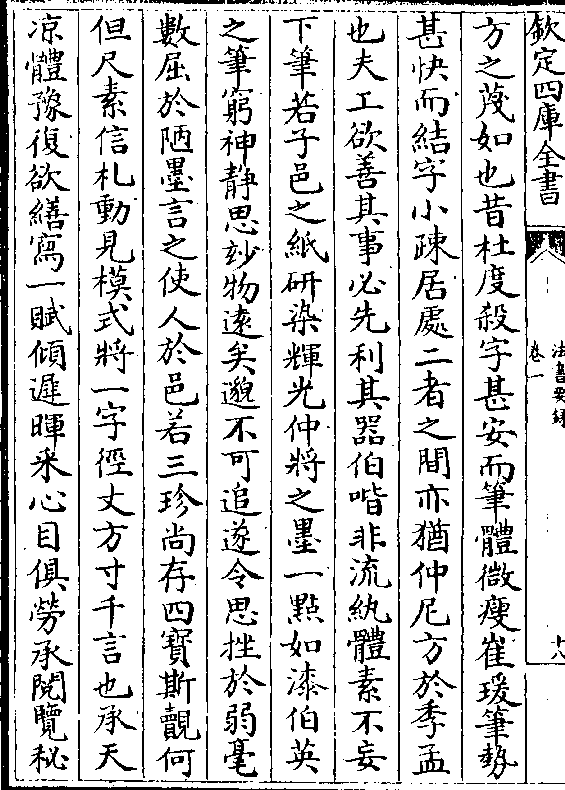 欽定四庫全書
法書要錄
卷一
十八
方之蔑如也昔杜度殺字甚安而筆體微瘦崔瑗筆勢
甚快而結字小疎居處二者之間亦猶仲尼方於季孟
也夫工欲善其事必先利其器伯喈非流紈體素不妄
下筆若子邑之紙研染輝光仲將之墨一點如漆伯英
之筆窮神靜思妙物遠矣邈不可追遂令思挫於弱毫
數屈於陋墨言之使人於邑若三珍尚存四寶斯覿何
但尺素信札動見模式將一字徑丈方寸千言也承天
凉體豫復欲繕寫一賦傾遲暉采心目俱勞承閱覽秘